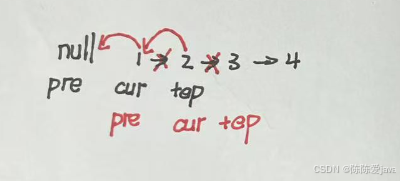 null 1 → 2 → 3 → 4
pre cur tep
pre cur tep
CSDN @陈陈爱java